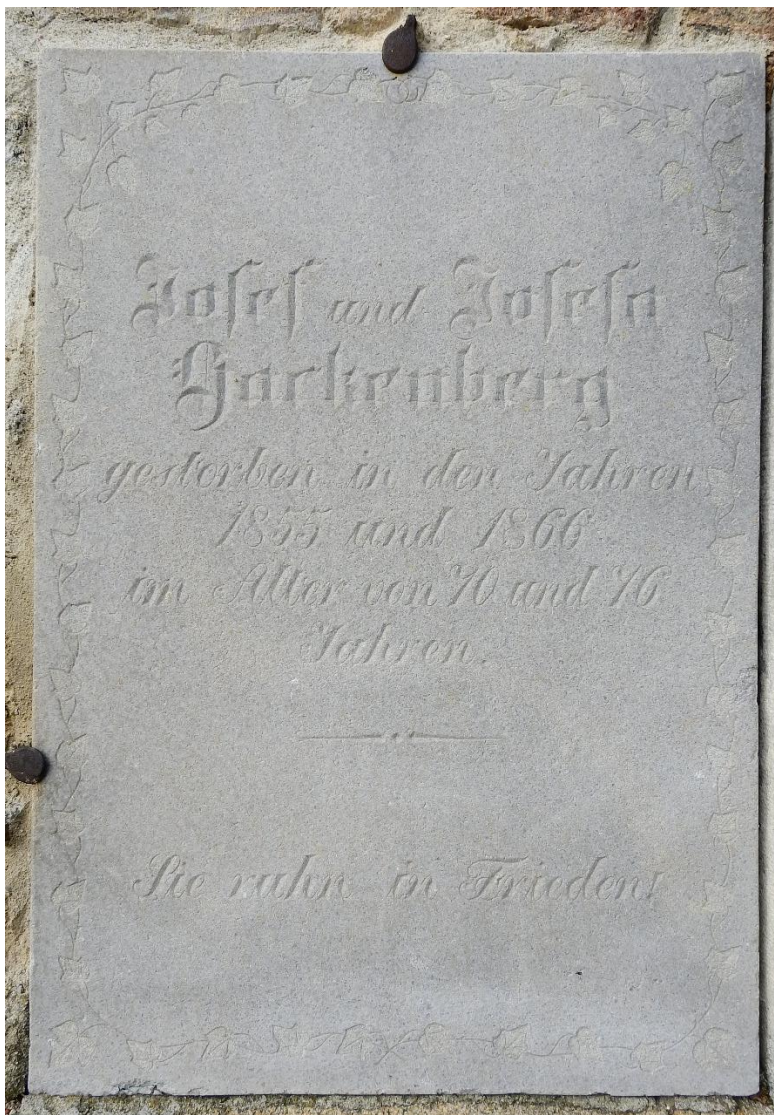 Josef und Josefa
Hackenberg
gestorben in den Jahren
1855 und 1866
im Alter von 70 und 76
Jahren.
Sie ruhn in Frieden!